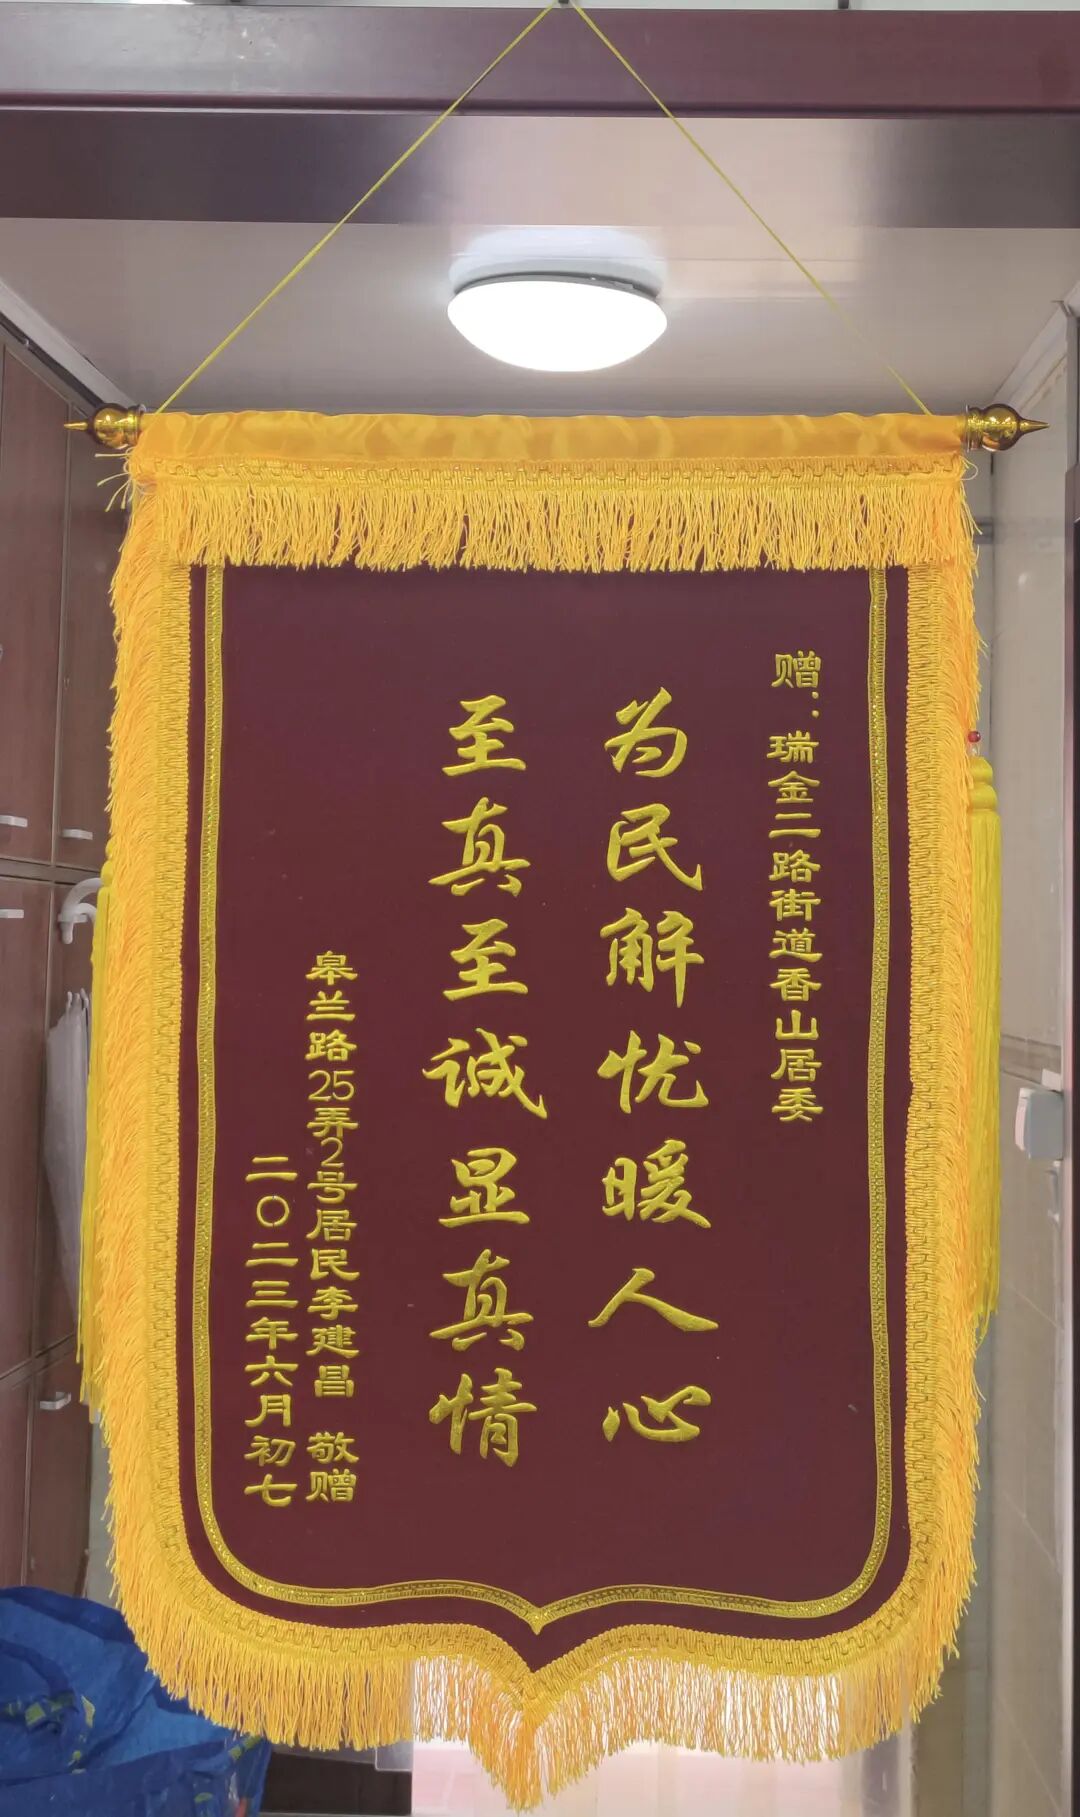 赠：瑞金二路街道香山居委
为民解忧暖人心
至真至诚显真情
皋兰路25弄2号居民李建昌 敬赠
二〇二三年六月初七